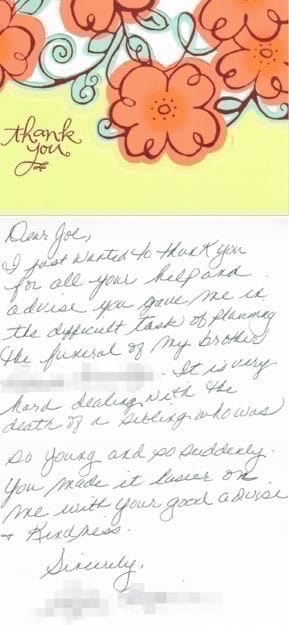 thank
you
Dear Joe,
I just wanted to thank you
for all your help and
advise you gave me in
the difficult task of planning
the funeral of my brother
It is very
hard dealing with the
death of a sibling who was
so young and so suddenly.
You made it easier on
me with your good advise
+ Kindness.
Sincerely,